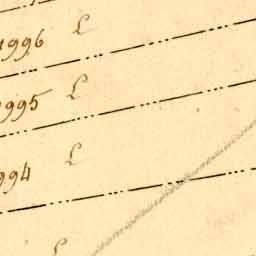 1996 L
1995 L
1994 L
L